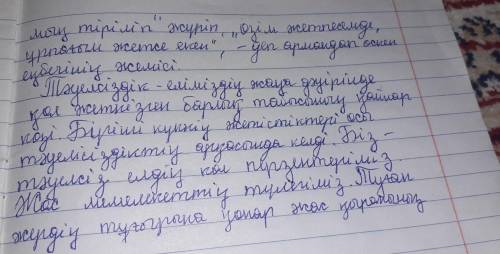 мың тіріліп" жүріп, „өзім жетпесемде,
ұрпағым жетсе екен", – деп армандап өскен
еңбегінің жемісі.
Тәуелсіздік - еліміздің жаңа дәуірінде
қол жеткізген барлық табысының қайнар
көзі. Бүгінгі күннің жетістіктері осы
тәуелсіздіктің арқасында келді. Біз –
тәуелсіз елдің көп перзентеріміз.
Жас мемлекеттің түлегіміз. Туған
жердің тұғырына қонар жас қыранының